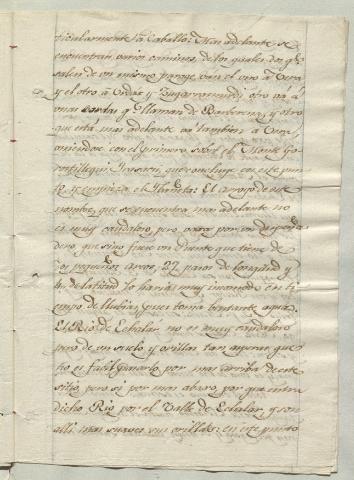 ticularmente á Caballo: Mas adelante se
encuentran varios caminos, de los quales dos qe
salen de un mismo parage van el uno á Vera
y el otro á Urdax y Zugarramurdi otro vá á
unas bordas qe llaman de Barberena, y otro
que está mas adelante va tambien á Vera,
uniendose con el primero sobre el Monte
que concluye con este pun-
to, y empieza el El arroyo de este
nombre, que se encuentra mas adelante no
es muy caudaloso, pero pasa por un despeña
dero, que sino fuese un Puente que tiene de
dos pequeños arcos, 22 pasos de longitud y
4 de latitud lo haria muy incomodo en ti-
empo de llubias, pues toma bastante agua.
El Rio de Echalar no es muy caudaloso
pero de un suelo y orillas tan asperas que
no es facil pasarlo, por mas arriba de este
sitio, pero si por mas abaxo, por que entra
dicho Rio por el Valle de Echalar, y son
alli mas suaves sus orillas: en este punto